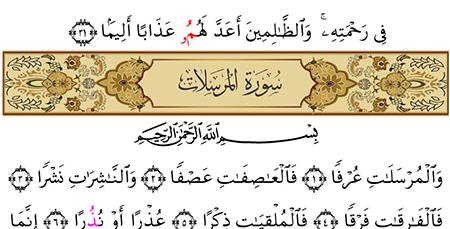 فِي رَحْمَتِهِۦۚ وَٱلظَّٰلِمِينَ أَعَدَّ لَهُمُۥ عَذَابًا أَلِيمَۢا ﴿٣١﴾
سُورَةُ المُرْسَلَات
بِسْمِ اللَّهِ الرَّحْمَٰنِ الرَّحِيمِ
وَٱلْمُرْسَلَٰتِ عُرْفًا ﴿١﴾ فَٱلْعَٰصِفَٰتِ عَصْفًا ﴿٢﴾ وَٱلنَّٰشِرَٰتِ نَشْرًا ﴿٣﴾
فَٱلْفَٰرِقَٰتِ فَرْقًا ﴿٤﴾ فَٱلْمُلْقِيَٰتِ ذِكْرًا ﴿٥﴾ عُذْرًا أَوْ نُذُرًا ﴿٦﴾ إِنَّمَا